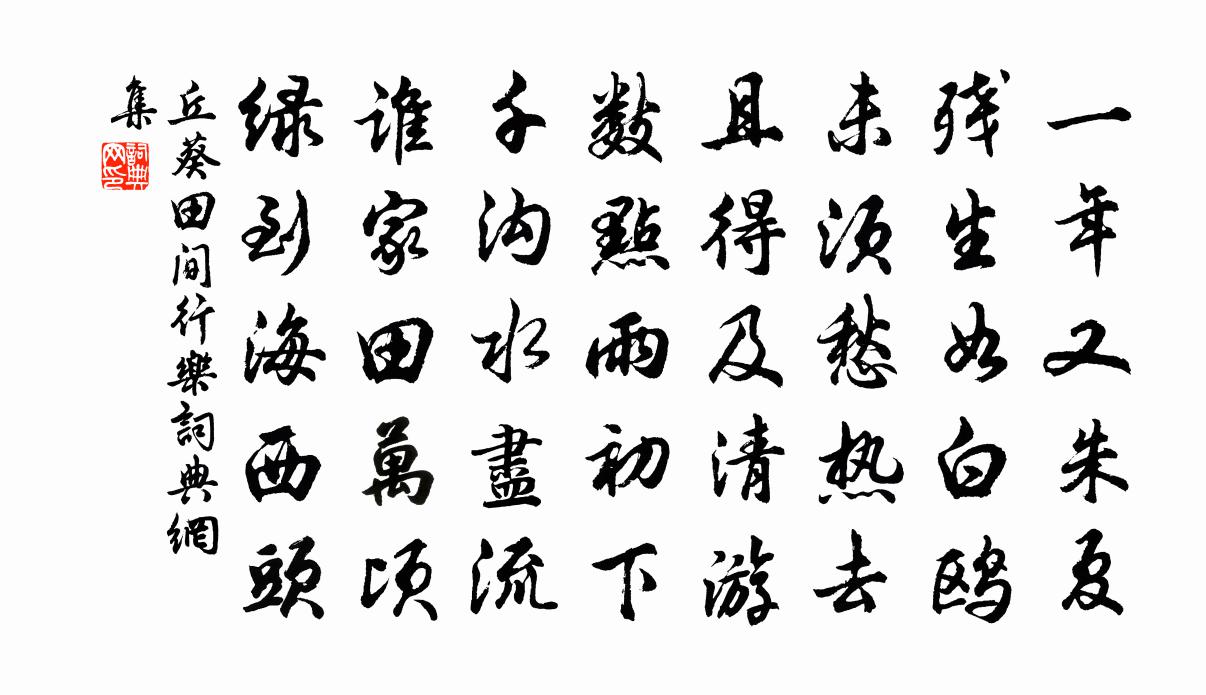 一年又朱夏
残生如白鸥
未须愁热去
且得及清游
数點雨初下
千沟水盡流
谁家田萬顷
绿到海西頭
丘葵田间行樂詞典網
集
詞典网印